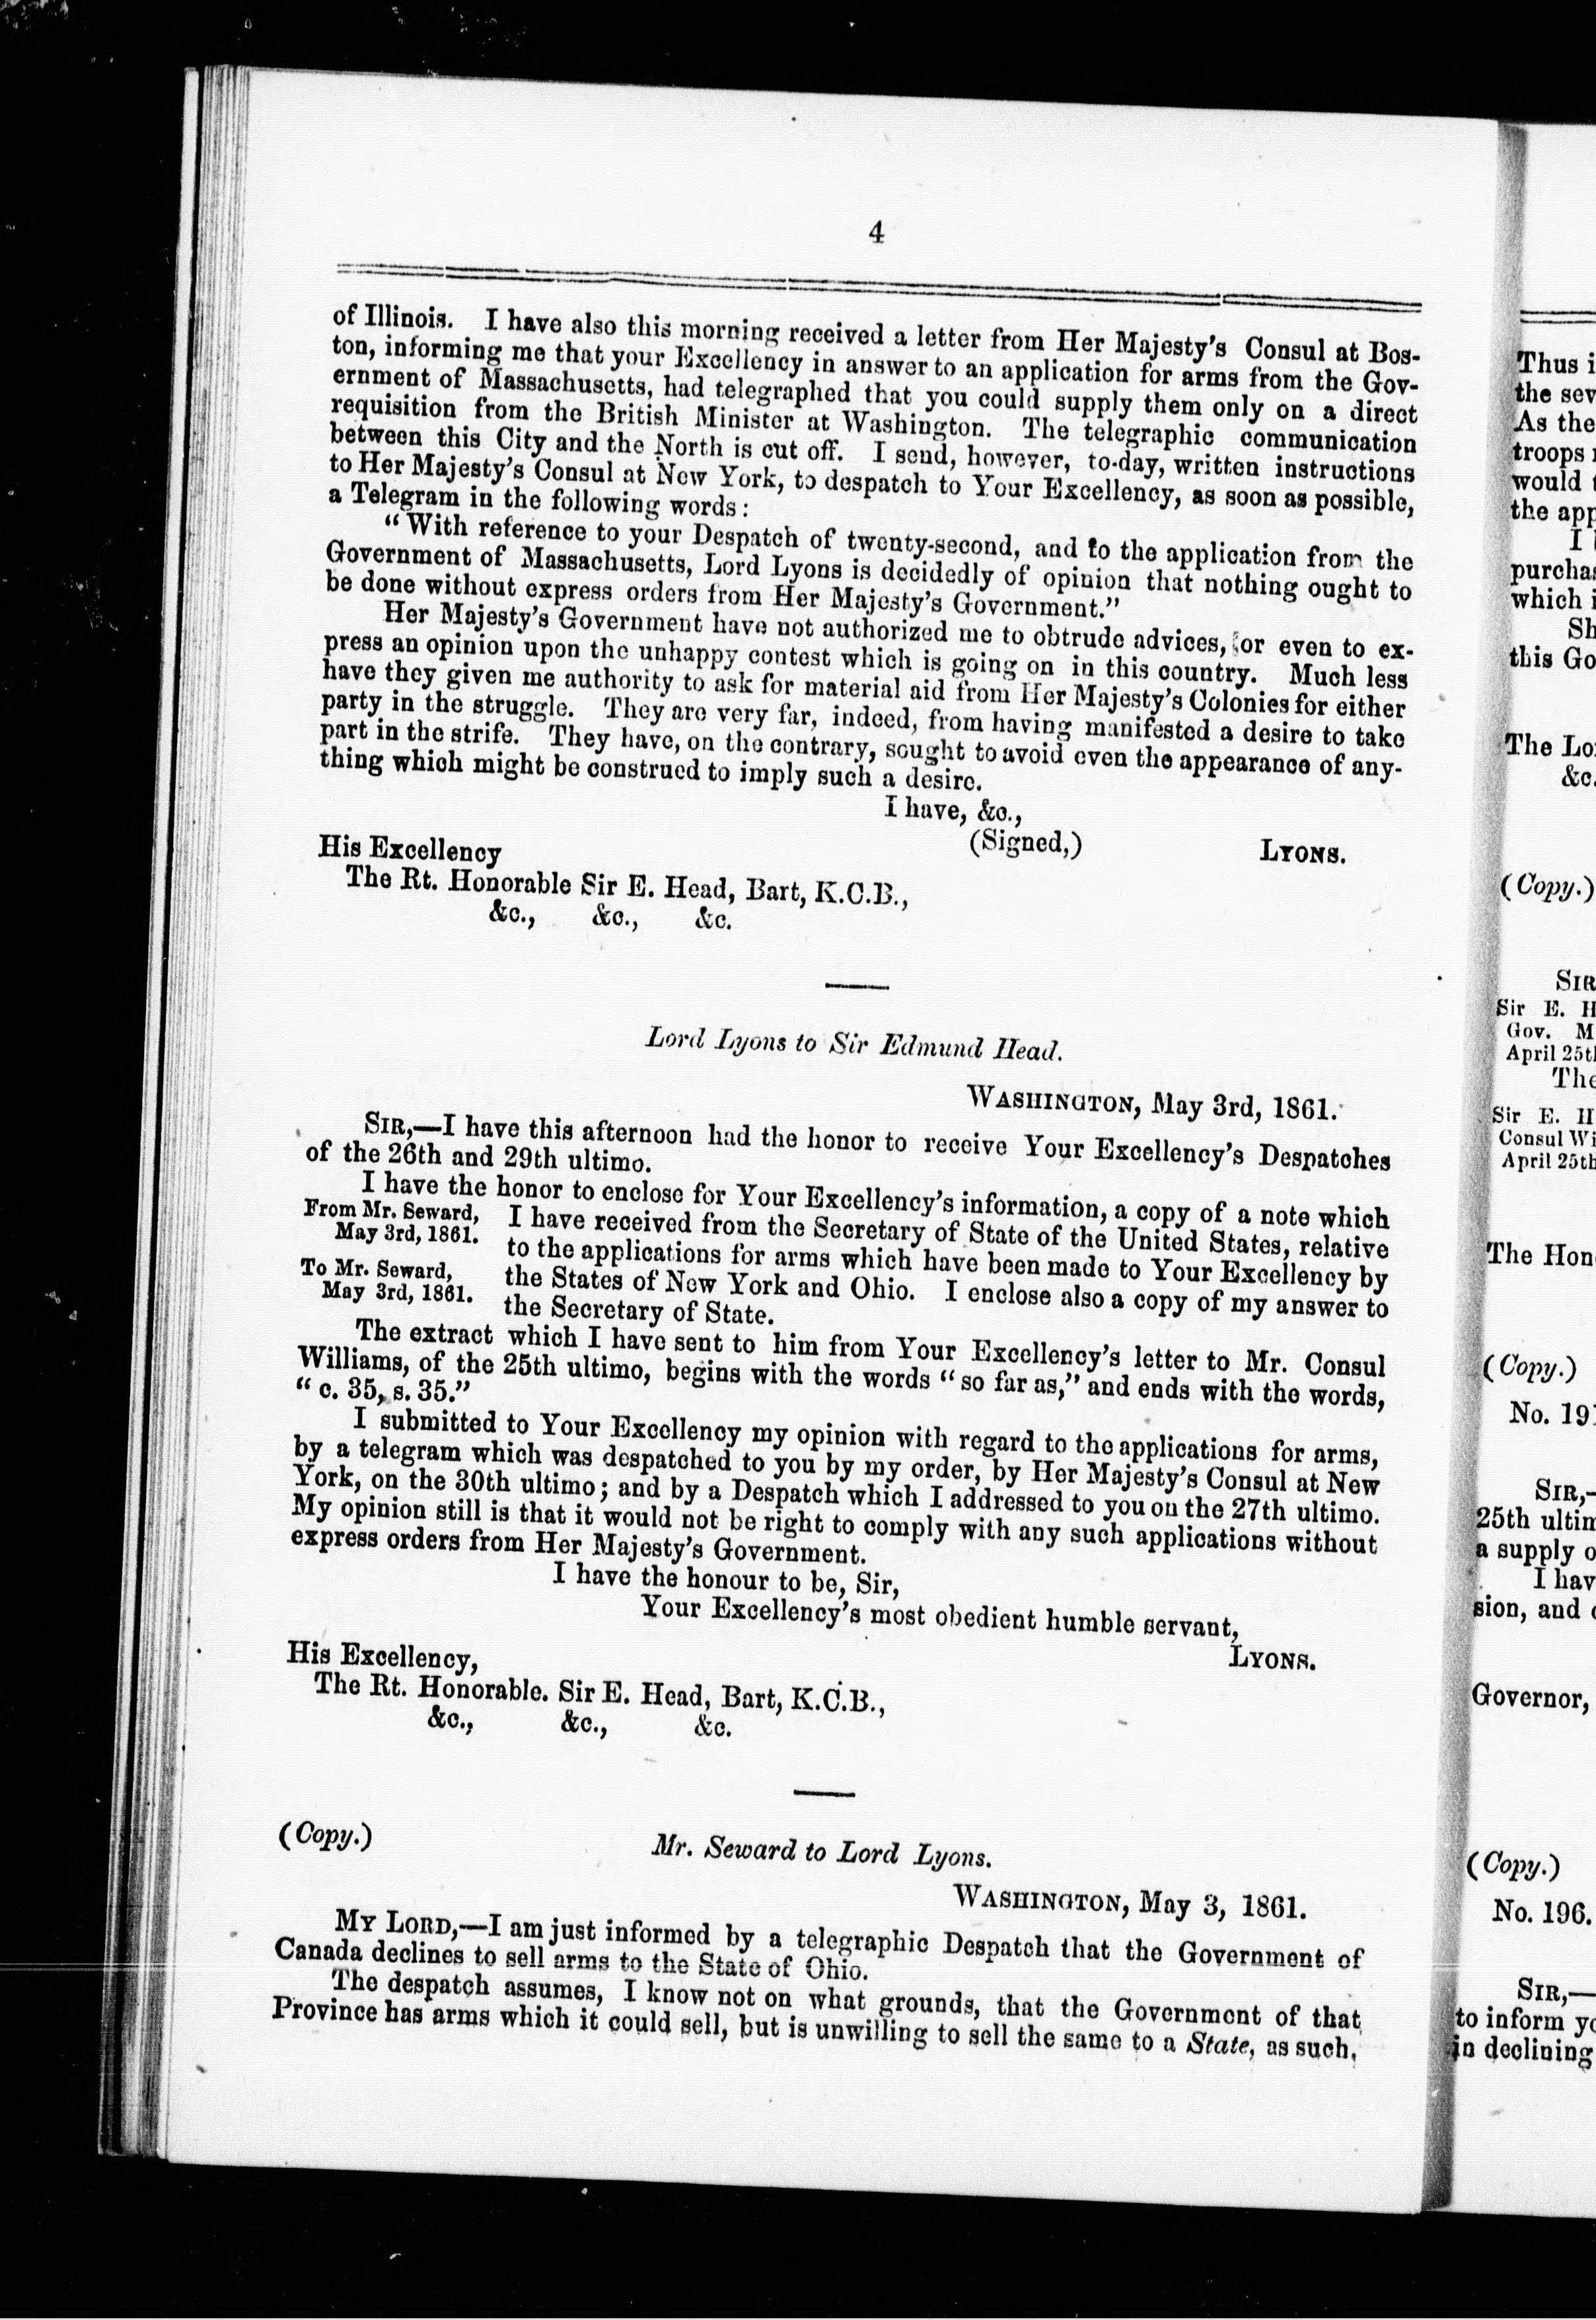 4
of Illinois. I have also this morning received a letter from Her Majesty's Consul at Bos-
ton, informing me that your Excellency in answer to an application for arms from the Gov-
ernment of Massachusetts, had telegraphed that you could supply them only on a direct
requisition from the British Minister at Washington. The telegraphic communication
between this City and the North is cut off. I send, however, to-day, written instructions
to Her Majesty's Consul at New York, to despatch to Your Excellency, as soon as possible,
a Telegram in the following words:
"With reference to your Despatch of twenty-second, and to the application from the
Government of Massachusetts, Lord Lyons is decidedly of opinion that nothing ought to
be done without express orders from Her Majesty's Government."
Her Majesty's Government have not authorized me to obtrude advices, or even to ex-
press an opinion upon the unhappy contest which is going on in this country. Much less
have they given me authority to ask for material aid from Her Majesty's Colonies for either
party in the struggle. They are very far, indeed, from having manifested a desire to take
part in the strife. They have, on the contrary, sought to avoid even the appearance of any-
thing which might be construed to imply such a desire.
I have, &c.,
(Signed,) LYONS.
His Excellency
The Rt. Honorable Sir E. Head, Bart, K.C.B.,
&c., &c., &c.
Lord Lyons to Sir Edmund Head.
WASHINGTON, May 3rd, 1861.
SIR,—I have this afternoon had the honor to receive Your Excellency's Despatches
of the 26th and 29th ultimo.
I have the honor to enclose for Your Excellency's information, a copy of a note which
From Mr. Seward, I have received from the Secretary of State of the United States, relative
May 3rd, 1861. to the applications for arms which have been made to Your Excellency by
To Mr. Seward, the States of New York and Ohio. I enclose also a copy of my answer to
May 3rd, 1861. the Secretary of State.
The extract which I have sent to him from Your Excellency's letter to Mr. Consul
Williams, of the 25th ultimo, begins with the words "so far as," and ends with the words,
"c. 35, s. 35."
I submitted to Your Excellency my opinion with regard to the applications for arms,
by a telegram which was despatched to you by my order, by Her Majesty's Consul at New
York, on the 30th ultimo; and by a Despatch which I addressed to you on the 27th ultimo.
My opinion still is that it would not be right to comply with any such applications without
express orders from Her Majesty's Government.
I have the honour to be, Sir,
Your Excellency's most obedient humble servant,
LYONS.
His Excellency,
The Rt. Honorable. Sir E. Head, Bart, K.C.B.,
&c., &c., &c.
(Copy.)
Mr. Seward to Lord Lyons.
WASHINGTON, May 3, 1861.
MY LORD,—I am just informed by a telegraphic Despatch that the Government of
Canada declines to sell arms to the State of Ohio.
The despatch assumes, I know not on what grounds, that the Government of that
Province has arms which it could sell, but is unwilling to sell the same to a State, as such,
Thus
the
As the
troops
would
the
I
which
this
The
&c.
(Copy.)
SIR
Sir E.
Gov.
April
The
Sir E.
Consul
April 25th
The
(Copy.)
No.
SIR,—
25th
a supply
I
sion, and
Governor,
(Copy.)
No. 196.
SIR,—
to inform
in declining